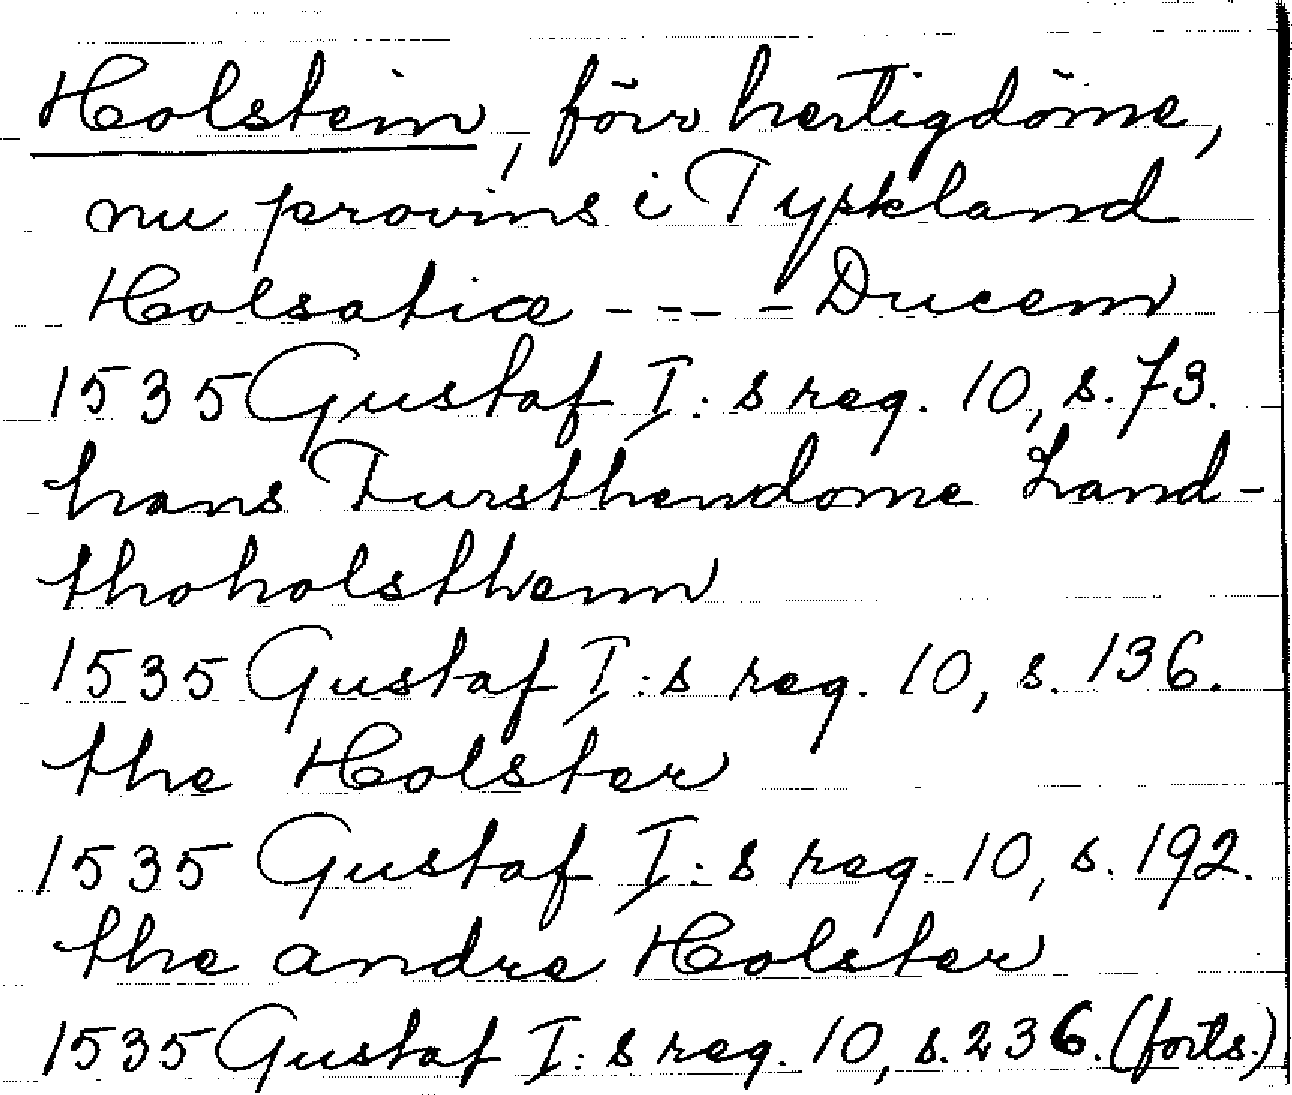 Holstein, förr hertigdöme,
nu provins i Tyskland
Holsatiæ - - - - Ducem
1535 Gustaf I:s reg. 10, s. 73.
hans Fursthendome Land-
thoholsthenn
1535 Gustaf I:s reg. 10, s. 136.
the Holster
1535 Gustaf I:s reg. 10, s. 192.
the andre Holster
1535 Gustaf I:s reg. 10, s. 236. (forts.)